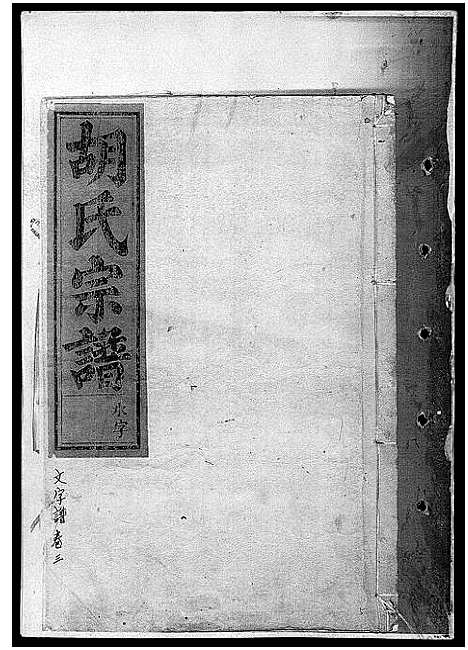 胡氏宗譜
水字
文字譜卷三